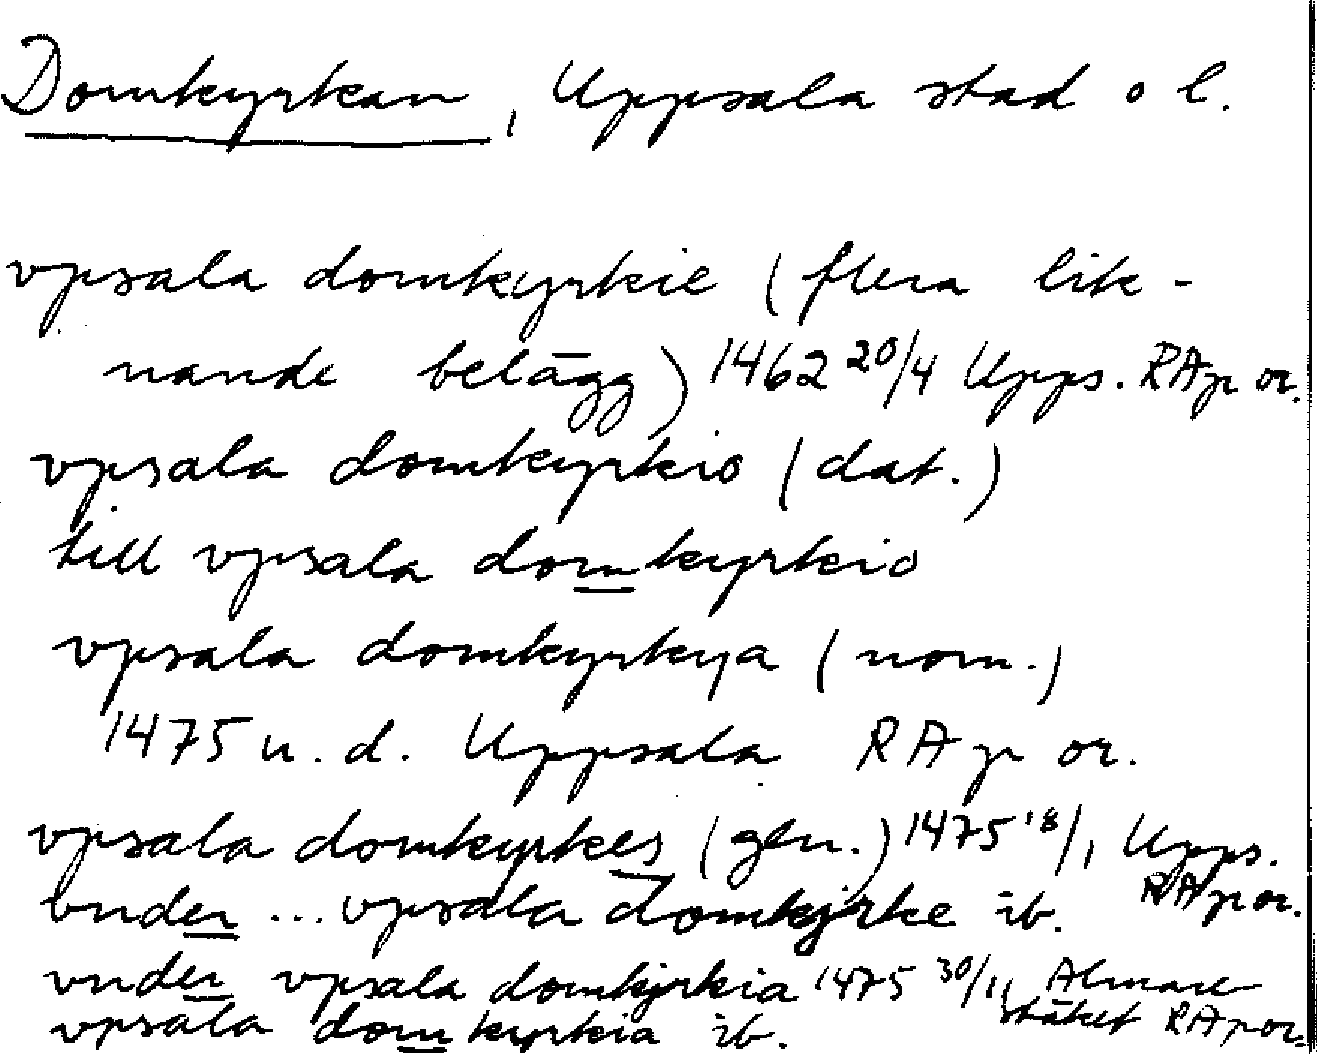 Domkyrkan, Uppsala stad o l.
vpsala domkyrkie (flera lik-
nande belägg) 1462 20/4 Upps. RAp or.
vpsala domkyrkio (dat.)
till vpsala domkyrkio
vpsala domkyrkya (nom.)
1475 u. d. Uppsala RAp or.
vpsala domkyrkes (gen.) 1475 18/1 Upps. RAp or.
vnder ... vpsala domkjrke ib.
vnder vpsala domkjrkia 1475 30/11 Almare stäket RAp or.
vpsala domkyrkia ib.